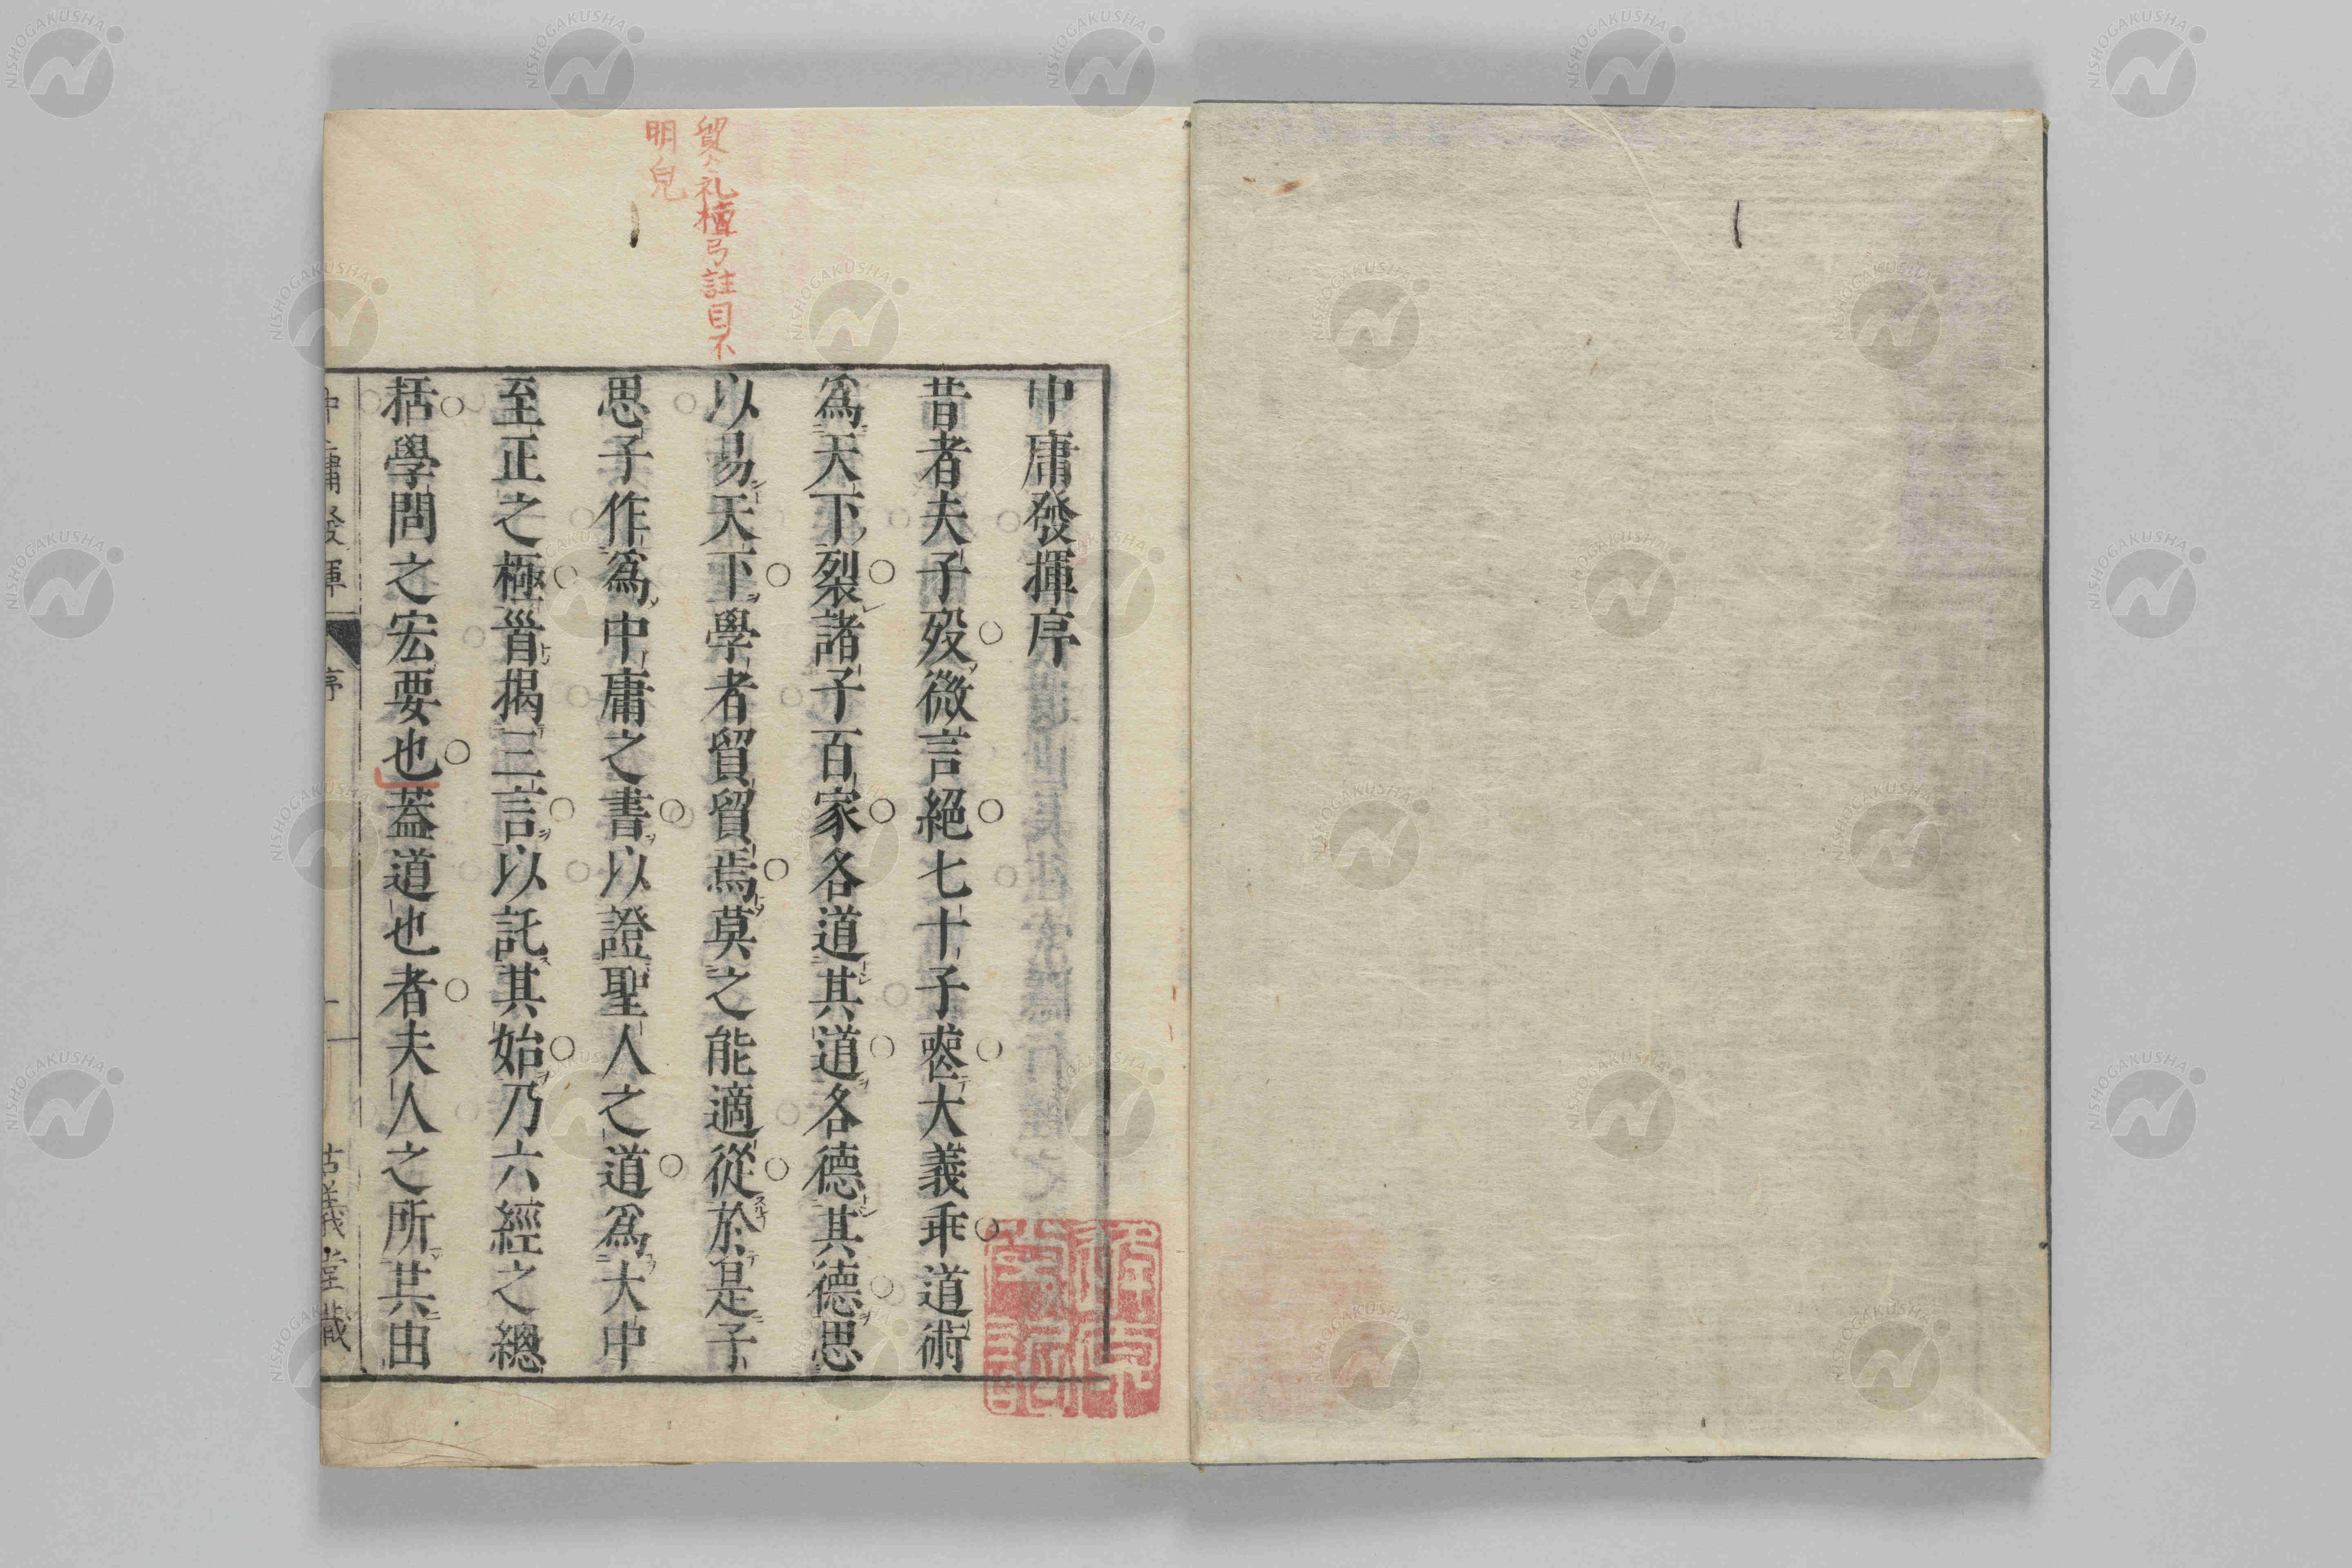 貿〻礼檀弓註目不
明皃
中庸發揮序
昔者夫子歿微言絕七十子喪大義乖道術
爲天下裂諸子百家各道其道各德其德思
以易天下學者貿貿焉莫之能適從於是子
思子作爲中庸之書以證聖人之道爲大中
至正之極首揭三言以託其始乃六經之總
括學問之宏要也蓋道也者夫人之所共由
中庸發揮
序
一
古義堂藏
NISHOGAKUSHA